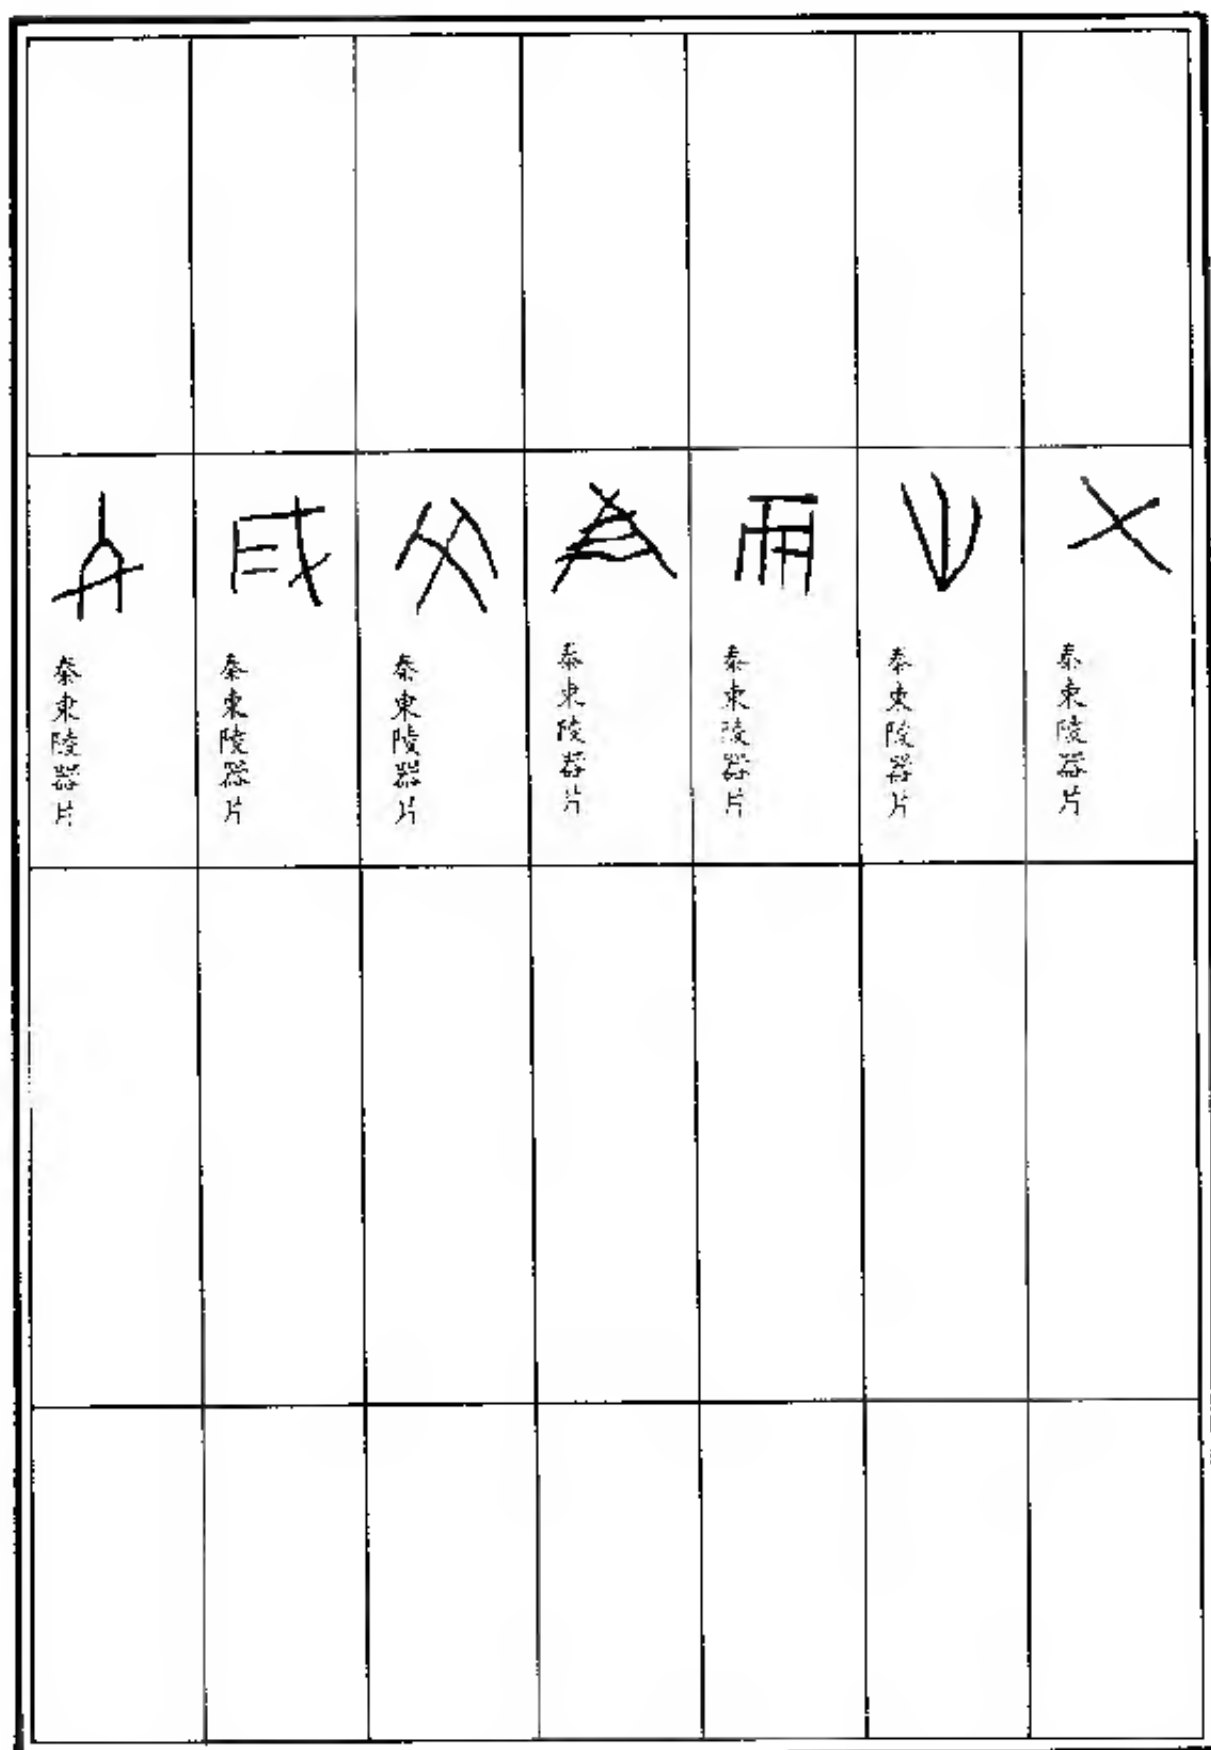 秦東陵器片
秦東陵器片
秦東陵器片
秦東陵器片
秦東陵器片
秦東陵器片
秦東陵器片